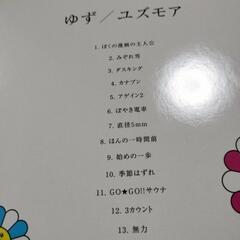 ゆず／ユズモア
1. ぼくの漫画の主人公
2. みぞれ雪
3. ダスキング
4. カナブン
5. アゲイン2
6. ぼやき電車
7. 直径5mm
8. ほんの一時間前
9. 始めの一歩
10. 季節はずれ
11. GO★GO!!サウナ
12. 3カウント
13. 無力